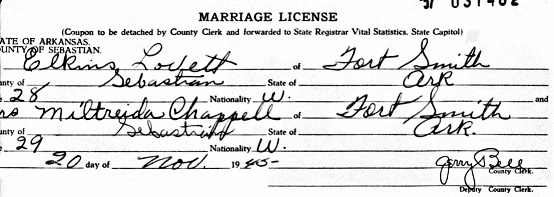 57 031402
MARRIAGE LICENSE
(Coupon to be detached by County Clerk and forwarded to State Registrar Vital Statistics, State Capitol)
ATE OF ARKANSAS.
OUNTY OF SEBASTIAN.
Elkins Lovett of Fort Smith
unty of Sebastian State of Ark
28 Nationality W. and
rs Miltreida Chappell of Fort Smith
unty of Sebastian State of Ark.
29 Nationality W.
20 day of Nov. 1945
Jerry Bell
County Clerk.
Deputy County Clerk.